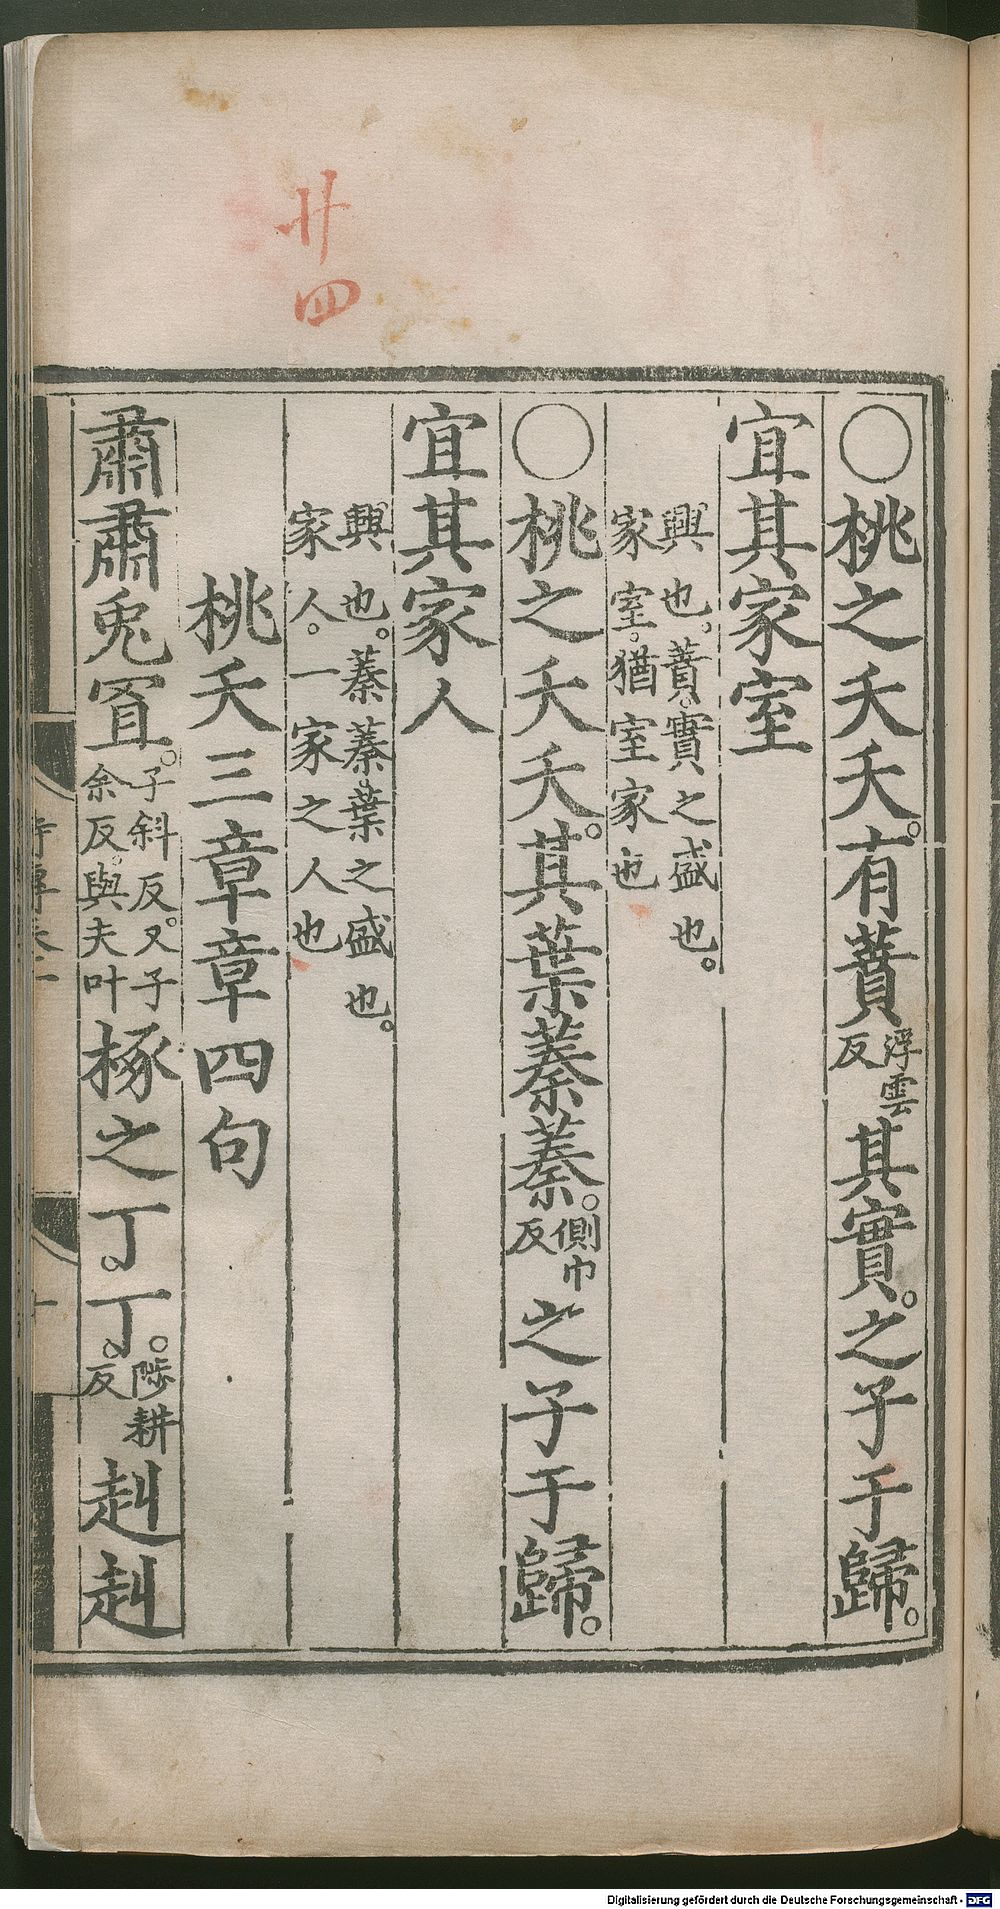 廿四
〇桃之夭夭。有蕡浮雲反其實。之子于歸。
宜其家室
興也。蕡。實之盛也。
家室。猶室家也
〇桃之夭夭。其葉蓁蓁。側巾反之子于歸。
宜其家人
興也。蓁蓁。葉之盛也。
家人。一家之人也
桃夭三章章四句
肅肅兎罝。子斜反。又子余反。與夫叶椓之丁丁。陟耕反。赳赳
Digitalisierung gefördert durch die Deutsche Forschungsgemeinschaft - DFG